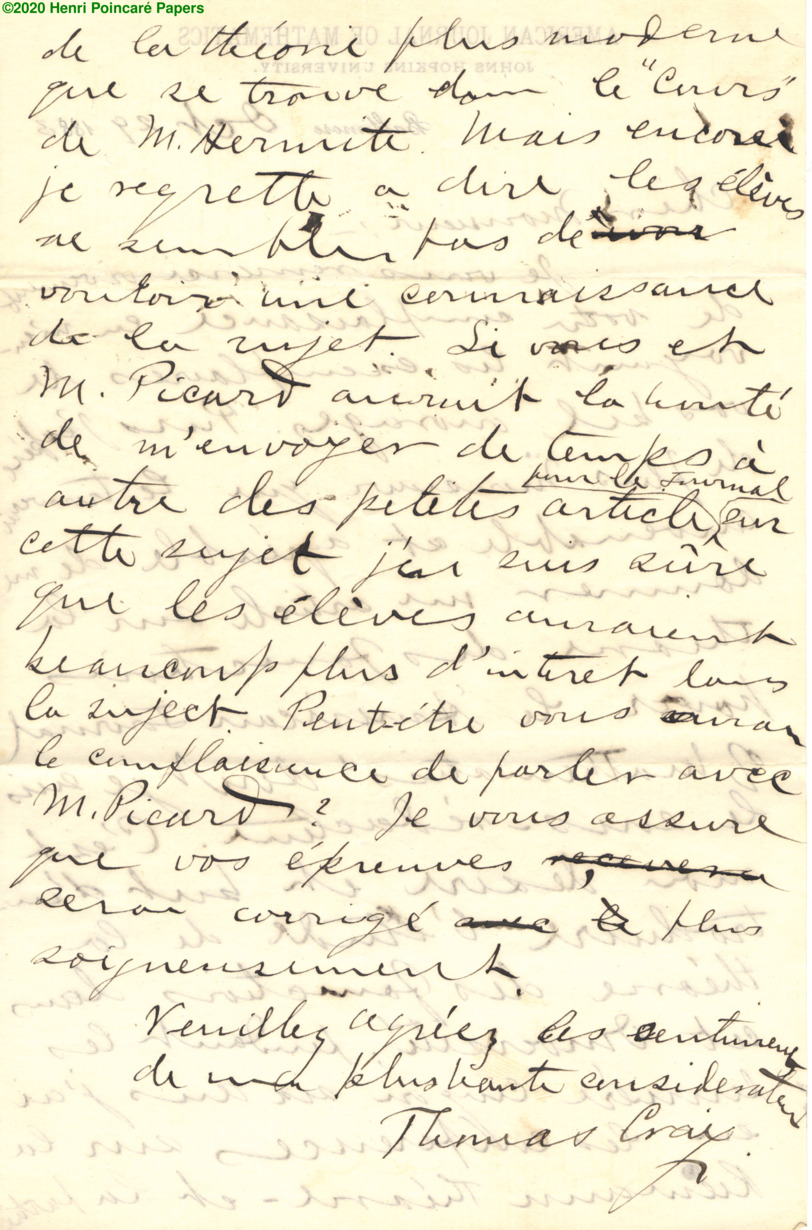 ©2020 Henri Poincaré Papers
de la théorie plus moderne
que se trouve dans le "Cours"
de M. Hermite. Mais encore
je regrette a dire les élèves
ne semblent pas de
vouloir une connaissance
de la sujet. Si vous et
M. Picard auriut la bonté
de m'envoyer de temps à
pour le Journal
autre des petites article sur
cette sujet j'en suis sûre
que les élèves auraient
beaucoup plus d'interet dans
la suject. Peut-être vous
le complaisance de parler avec
M. Picard? Je vous assure
que vos épreuves
seron corrigé avec le plus
soigneusement.
Veuillez agréez les
de ma plus haute consideration
Thomas Craig.